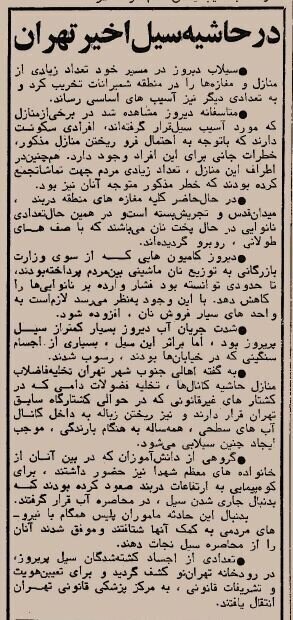 در حاشیه سیل اخیر تهران
●سیلاب دیروز در مسیر خود تعداد زیادی از
منازل و مغازه‌ها را در منطقه شمیرانات تخریب کرد و
به تعدادی دیگر نیز آسیب های اساسی رساند.
●متاسفانه دیروز مشاهده شد در برخی‌ازمنازل
که مورد آسیب سیل‌قرار گرفته‌اند، افرادی سکونت
دارند که باتوجه به احتمال فرو ریختن منازل مذکور،
خطرات جانی برای این افراد وجود دارد. هم‌چنین‌در
اطراف این منازل ، تعداد زیادی مردم جهت تماشاتجمع
کرده بودند که خطر مذکور متوجه آنان نیز بود.
●در حال‌حاضر کلیه مغازه های منطقه دربند ،
میدان‌قدس و تجریش‌بسته است‌و در همین حال‌تعدادی
نانوایی در حال پخت نان می‌باشند که با صف های
طولانی ، روبرو گردیده‌اند.
●دیروز کامیون هایی که از سوی وزارت
بازرگانی به توزیع نان ماشینی بین‌مردم پرداخته‌بودند،
تا حدودی توانسته بود فشار وارده بر نانوایی‌ها را
کاهش دهد. با این وجود به‌نظر می‌رسد لازم‌است به
واحد های سیار فروش نان ، افزوده شود.
●شدت جریان آب دیروز بسیار کمتراز سیل
پریروز بود ، اما براثر این سیل ، بسیاری از اجسام
سنگینی که در خیابان‌ها بودند ، رسوب شدند.
●به گفته اهالی جنوب شهر تهران تخلیه‌فاضلاب
منازل حاشیه کانال‌ها ، تخلیه فضولات دامی که در
کشتار های غیرقانونی که در حوالی کشتارگاه سابق
تهران قرار دارند و نیز ریختن زباله به داخل کانال
آب های سطحی ، همه‌ساله به هنگام بارندگی ، موجب
ایجاد چنین سیلابی می‌شود.
●گروهی از دانش‌آموزان که در بین آنان از
خانواده های معظم شهدا نیز حضور داشتند ، برای
کوه‌پیمایی به ارتفاعات دربند صعود کرده بودند که
بدنبال جاری شدن سیل ، در محاصره آب قرار گرفتند.
بدنبال این حادثه ماموران پلیس همگام با نیرو-
های مردمی به کمک آنها شتافتند وموفق شدند آنان
را از محاصره سیل نجات دهند.
●تعدادی از اجساد کشته‌شدگان سیل پریروز،
در رودخانه تهران‌نو کشف گردید و برای تعیین‌هویت
و تشریفات قانونی ، به مرکز پزشکی قانونی تهران
انتقال یافتند.